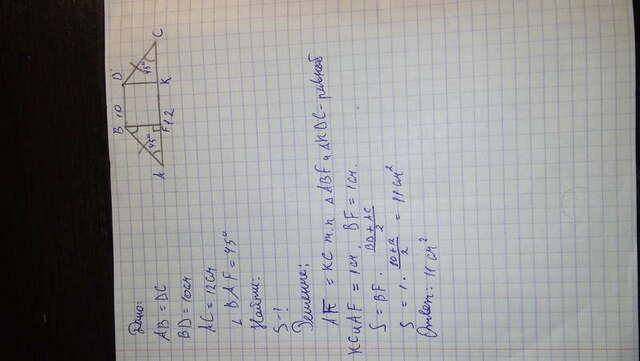 B 10 D
45°
45°
A F 12 K C
Дано:
AB = DC
BD = 10см
AC = 12см
∠ BAF = 45°
Найти:
S - ?
Решение:
AF = KC т.к △ABF и △KDC - равноб
KC и AF = 1см. BF = 1см.
S = BF · \frac{BD + AC}{2}
S = 1 · \frac{10 + 12}{2} = 11 см²
Ответ: 11 см²